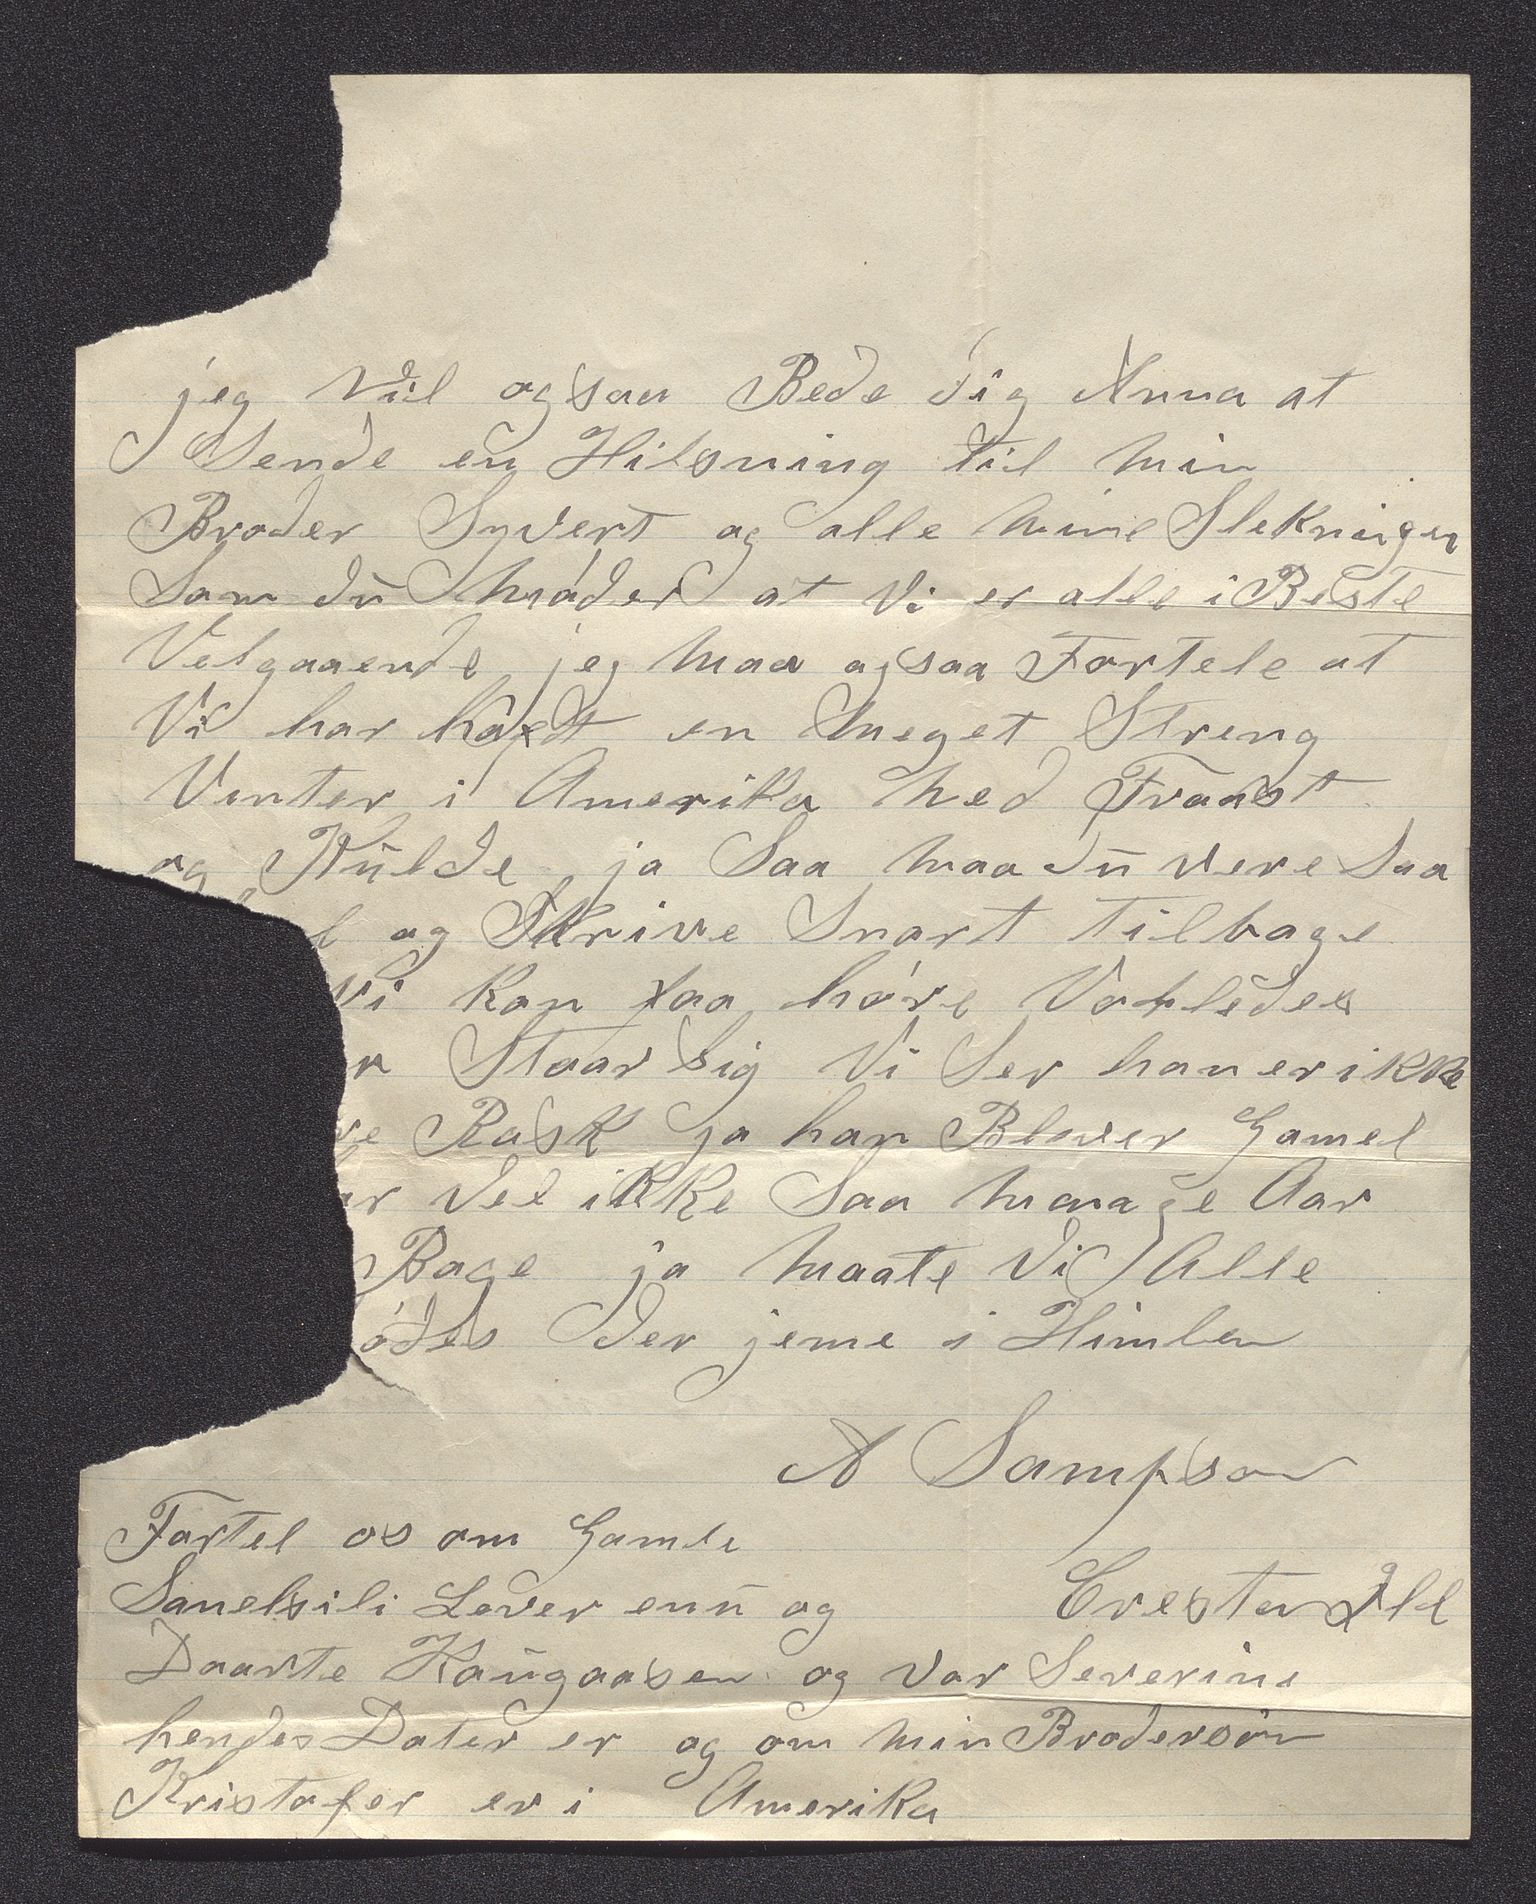 jeg vil ogsaa Bede dig Anna at
Sende en Hilsning til min
Broder Syvert og alle mine Slekninger
Som du möder at vi er alle i Beste
Velgaaende jeg maa ogsaa Fortele at
Vi har havt en meget Streng
Vinter i Amerika med Fraast
og Kulde ja Saa maa du vere Saa
l og Skrive Snart tilbage
vi kan faa höre Vorledes
r Staar Sig Vi Ser han er ikke
ve Rask ja han Blever Gamel
ar vel ikke Saa mange Aar
Bage ja maate Vi Alle
ödes der jeme i Himlen
A Sampson
Fortel os om Gamle
Lever enu og
Creston Ill
Daarte Kaugaasen og vor Severine
hendes Dater er og om min Brodersön
Kristofer er i Amerika